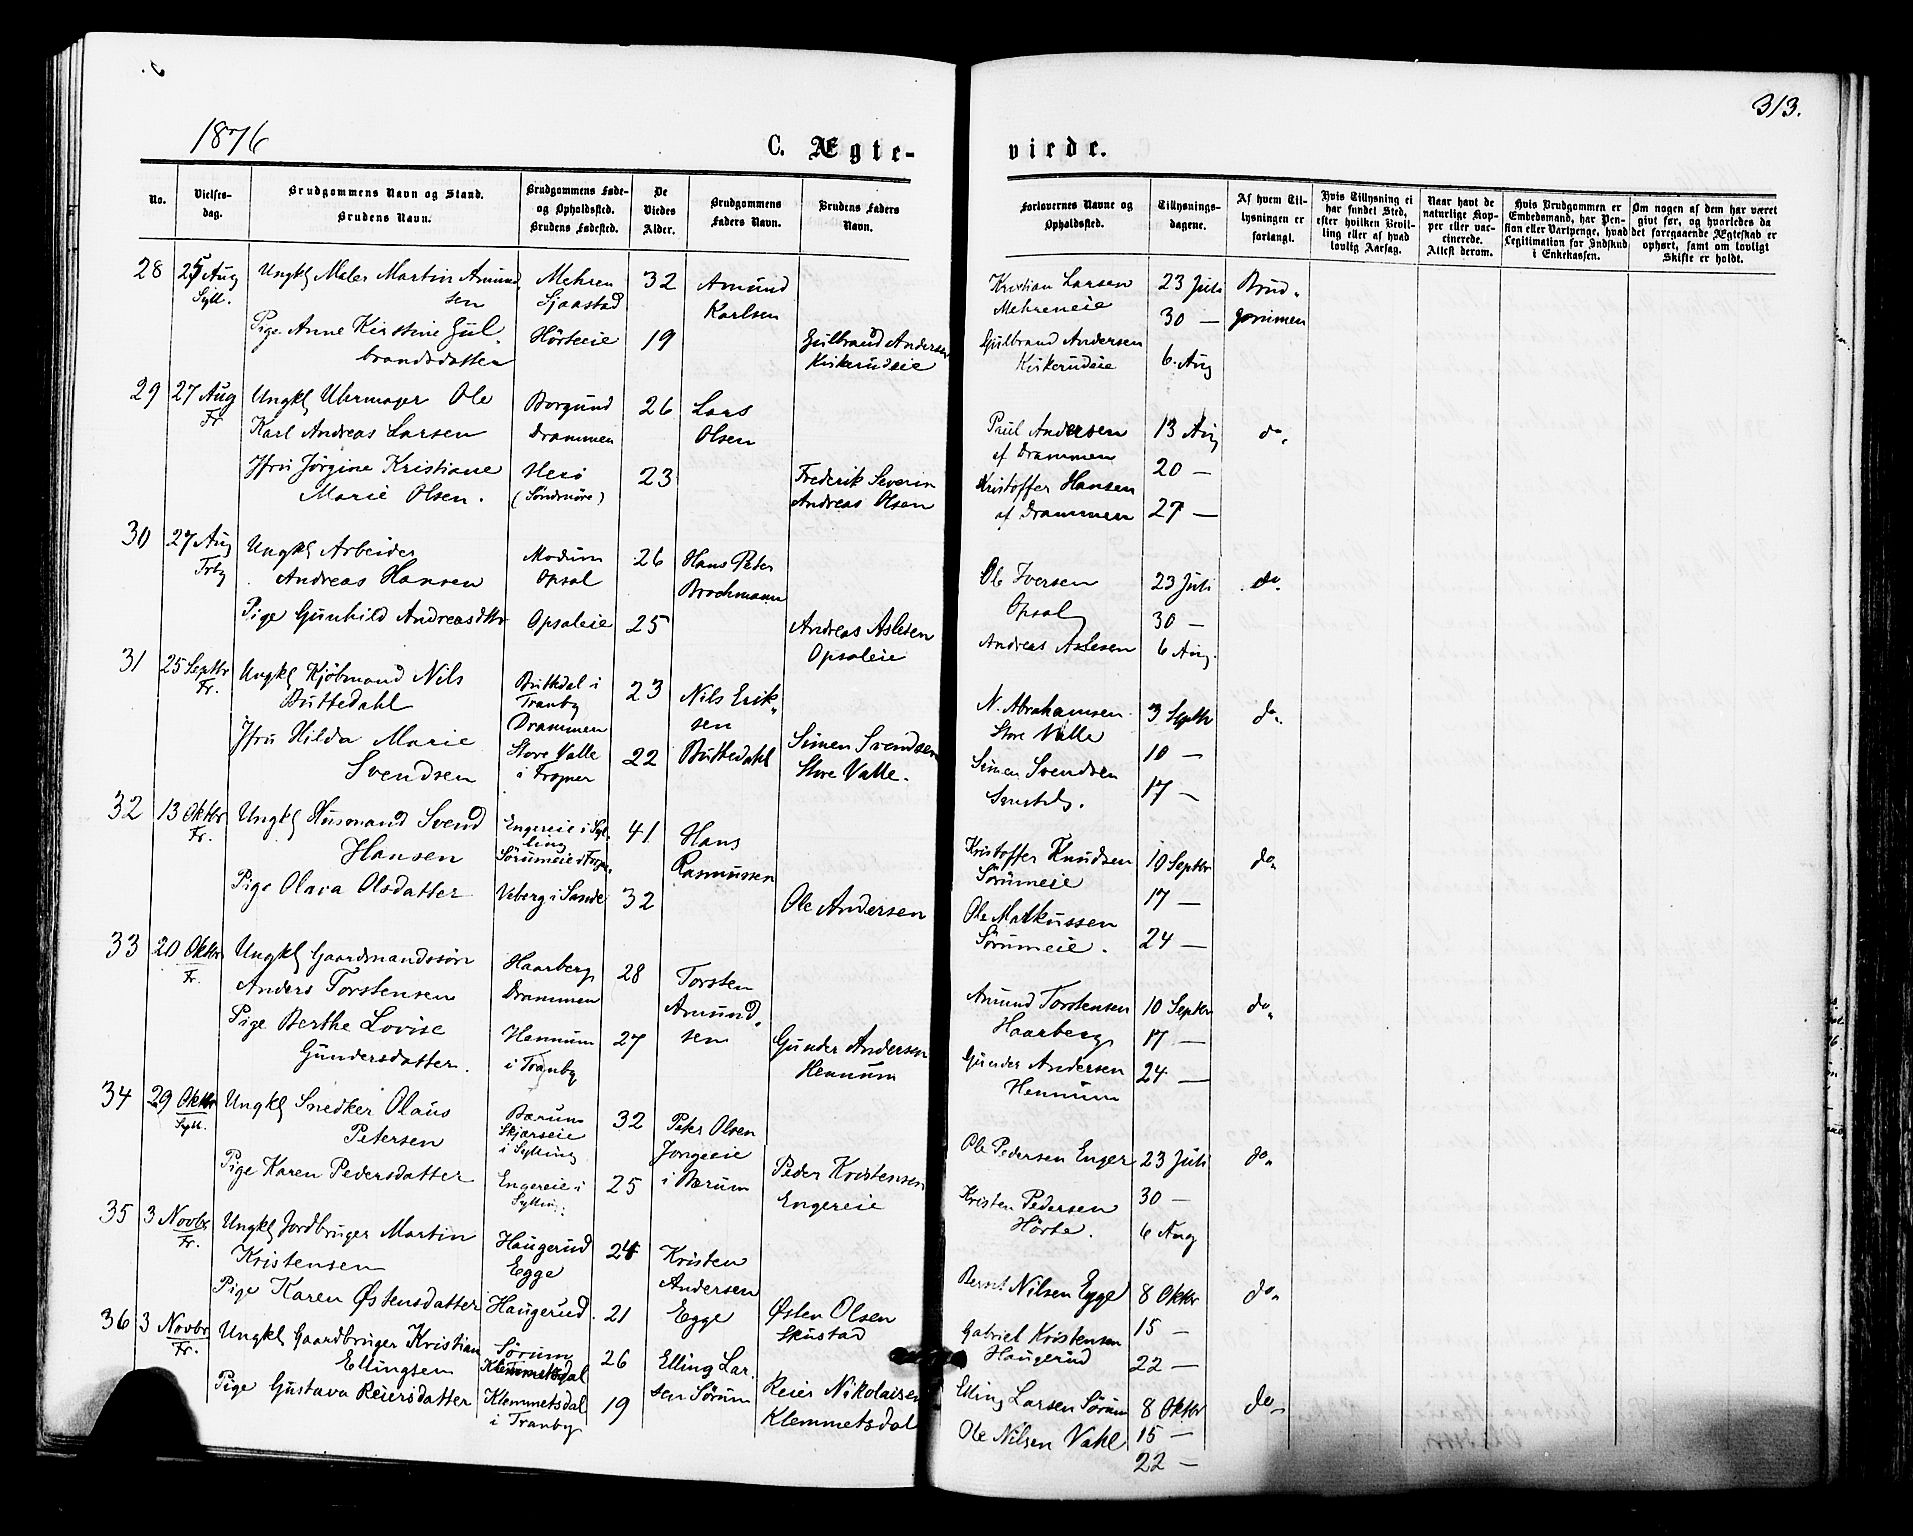 1876
313.
C. Ægte-
viede.
No.
Vielses-
dag.
Brudgommens Navn og Stand.
Brudens Navn.
Brudgommens Føde-
og Opholdssted.
Brudens Fødested.
De
Viedes
Alder.
Brudgommens
Faders Navn.
Brudens Faders
Navn.
Forlovernes Navne og
Opholdssted.
Tillysnings-
dagene.
Af hvem Til-
lysningen er
forlangt.
Hvis Tillysning ei
har fundet Sted,
efter hvilken Bevil-
ling eller af hvad
lovlig Aarsag.
Naar havt de
naturlige Kop-
per eller vac-
cinerede.
Attest derom.
Hvis Brudgommen er
Embedsmand, har Pen-
sion eller Vartpenge, hvad
Legitimation for Indskud
i Enkekassen.
Om nogen af dem har været
givt før, og hvorledes da
det foregaaende Ægteskab er
ophørt, samt om lovligt
Skifte er holdt.
28
25 Aug
Syll.
Ungkl Maler Martin Amund
sen
Pige Anne Kirstine Gul-
brandsdatter
Mehren
Sjaastad
Hörteeie
32
19
Amund
Karlsen
Gulbrand Andersen
Kiskerudeie
Kristian Larsen
Mehreneie
Gulbrand Andersen
Kiskerudeie
23 Juli
30 —
6. Aug
Brud-
gommen
29
27 Aug
Fr
Ungkl Uhrmager Ole
Karl Andreas Larsen
Jfru Jörgine Kristiane
Marie Olsen.
Borgund
Drammen
Herö
(Söndmöre)
26
23
Lars
Olsen
Frederik Severin
Andreas Olsen
Paul Andersen
af Drammen
Kristoffer Hansen
af Drammen
13 Aug
20 —
27 —
do.
30
27 Aug
Trby
Ungkl Arbeider
Andreas Hansen
Pige Gunhild Andreasdttr
Modum
Opsal
Opsaleie
26
25
Hans Peder
Brochmann
Andreas Aslesen
Opsaleie
Ole Iversen
Opsal
Andreas Aslesen
23 Juli
30 —
6 Aug.
do.
31
25 Septbr
Fr.
Ungkl Kjöbmand Nils
Buttedahl
Jfru Hilda Marie
Svendsen
Buttedal i
Tranby
Drammen
Store Valle
i Frogner
23
22
Nils Erik-
sen
Buttedahl
Simen Svendsen
Store Valle.
N. Abrahamsen
Store Valle
Simen Svendsen
3 Septbr
10 —
17 —
do.
32
13 Oktbr
Fr.
Ungkl Husmand Svend
Hansen
Pige Olava Olsdatter
Engereie i Syl-
ling
Sörumeie i Frogn.
Veberg i Sande
41
32
Hans
Rasmussen
Ole Andersen
Kristoffer Knudsen
Sörumeie
Ole Markussen
Sörumeie.
10 Septbr
17 —
24 —
do.
33
20 Oktbr
Fr.
Ungkl Gaardmandssön
Anders Torstensen
Pige Berthe Lovise
Gundersdatter.
Haarberg
Drammen
Hennum
i Tranby
28
27
Torsten
Amund-
sen
Gunder Andersen
Hennum
Amund Torstensen
Haarberg
Gunder Andersen
Hennum
10 Septbr
17 —
24 —
do.
34
29 Oktbr
Syll.
Ungkl Snedker Olaus
Petersen
Pige Karen Pedersdatter
Bærum
Skjærseie
i Sylling
Engereie i
Sylling
32
25
Peter Olsen
Jongeeie
i Bærum
Peder Kristensen
Engereie
Ole Pedersen Enger
Kristen Pedersen
Hörte.
23 Juli
30 —
6 Aug
do.
35
3 Novbr
Fr.
Ungkl Jordbruger Martin
Kristensen
Pige Karen Østensdatter
Haugerud
Egge
Haugerud.
24
21
Kristen
Andersen
Egge
Østen Olsen
Skustad
Bernt Nilsen Egge
Gabriel Kristensen
Haugerud
8 Oktbr
15 —
22 —
do.
36
3 Novbr
Fr.
Ungkl Gaardbruger Kristian
Ellingsen
Pige Gustava Reiersdatter
Sörum
Klemmetsdal
Klemmetsdal
i Tranby
26
19
Elling Lar-
sen Sörum
Reier Nikolaisen
Klemmetsdal
Elling Larsen Sörum
Ole Nilsen Vahl
8 Oktbr
15 —
22 —
do.